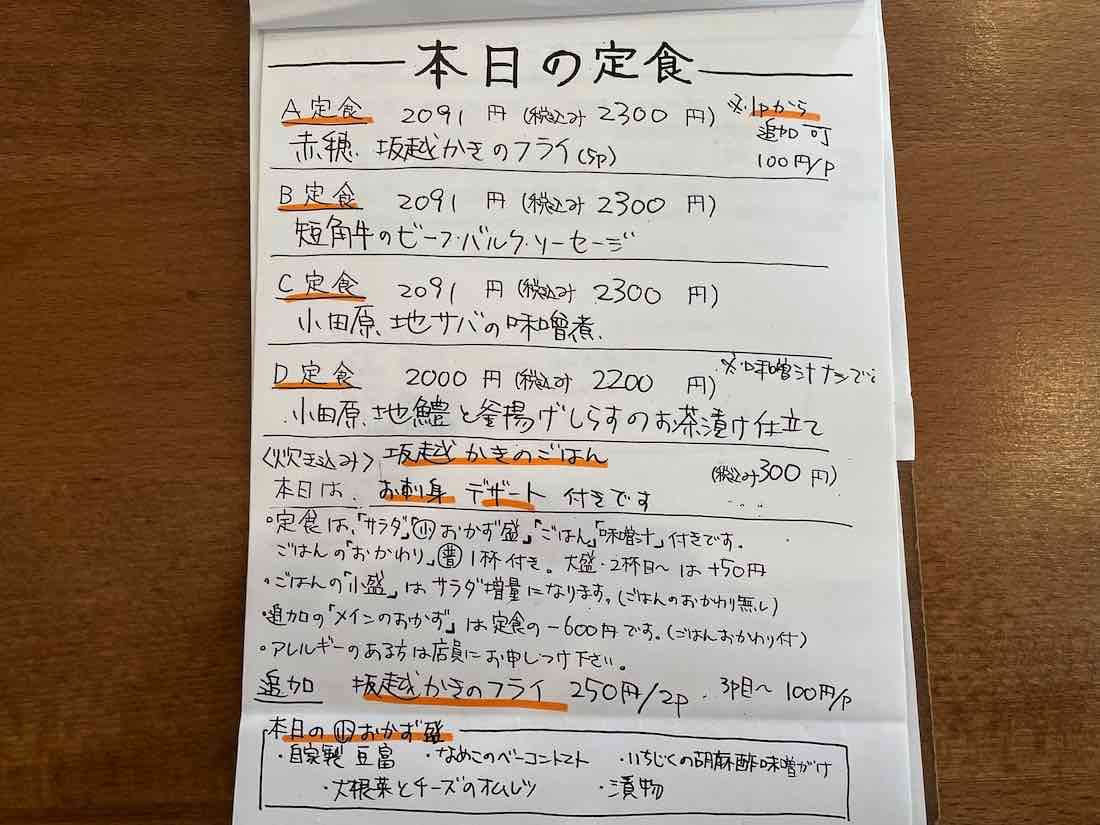 本日の定食
A定食 2091円(税込み2300円) ※1pから
追加可
赤穂、坂越かきのフライ(5p) 100円/p
B定食 2091円(税込み2300円)
短角牛のビーフ・バルク・ソーセージ
C定食 2091円(税込み2300円)
小田原、地サバの味噌煮、
D定食 2000円(税込み2200円) ※味噌汁ナシで
小田原、地鱧と釜揚げしらすのお茶漬け仕立て
〈炊き込み〉坂越かきのごはん (税込み300円)
本日は、お刺身 デザート 付きです
・定食は、「サラダ」「㋛おかず盛」「ごはん」「味噌汁」付きです。
ごはんの「おかわり」㊥1杯付き。大盛・2杯目〜は+50円
・ごはんの「小盛」はサラダ増量になります。(ごはんのおかわり無し)
・追加の「メインのおかず」は定食の-600円です。(ごはんおかわり付)
・アレルギーのある方は店員にお申しつけ下さい。
追加 坂越かきのフライ 250円/2p、3p目〜100円/p
本日の小おかず盛
・自家製豆富 ・なめこのベーコントマト ・いちじくの胡麻酢味噌がけ
・大根菜とチーズのオムレツ ・漬物